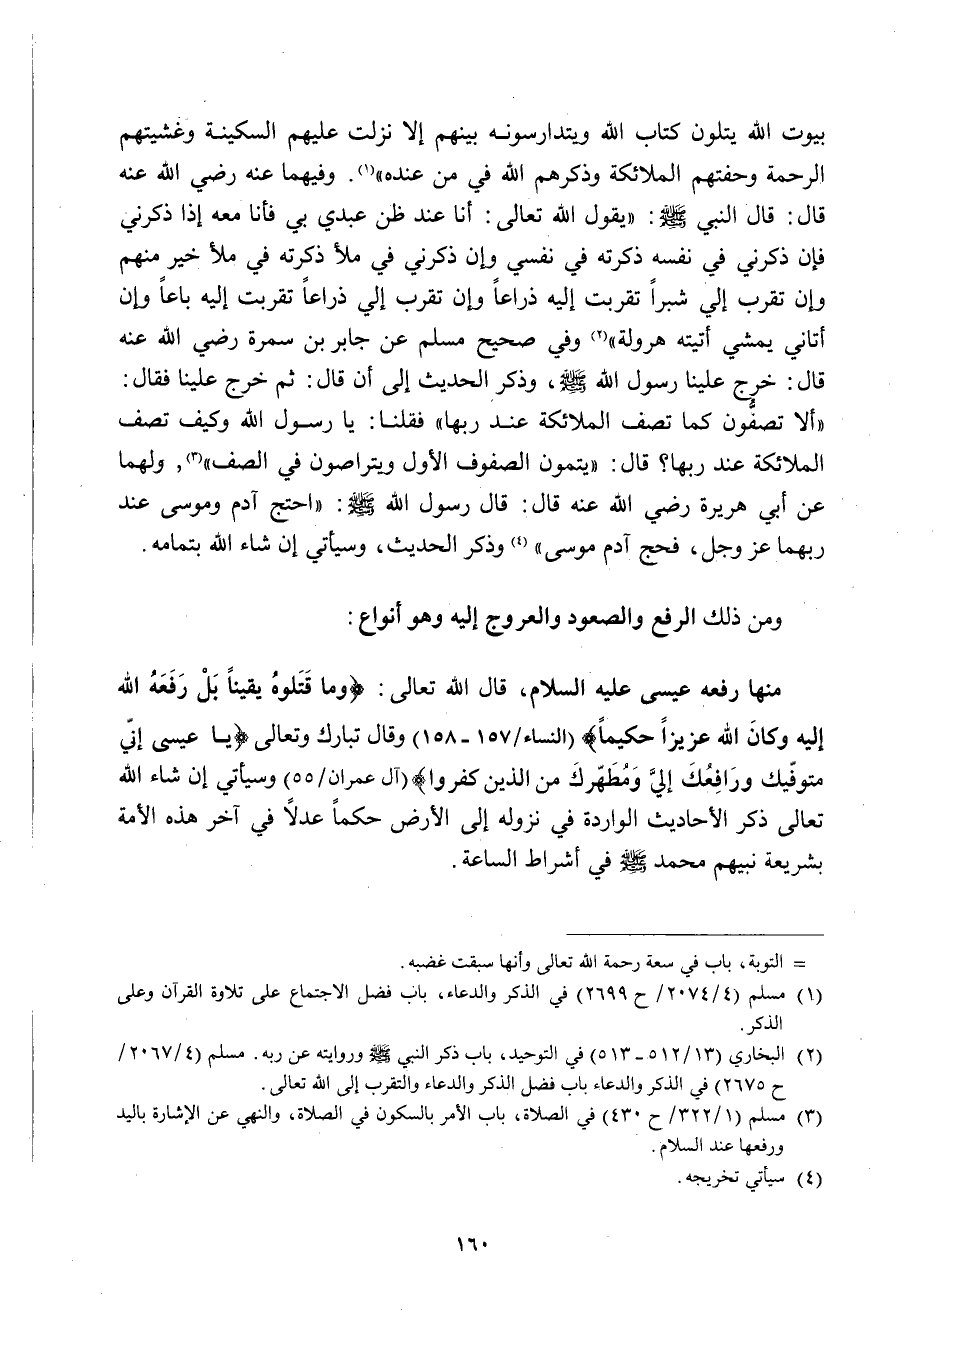 بيوت الله يتلون كتاب الله ويتدارسونه بينهم إلا نزلت عليهم السكينة وغشيتهم
الرحمة وحفتهم الملائكة وذكرهم الله في من عنده»(١). وفيهما عنه رضي الله عنه
قال: قال النبي ﷺ: «يقول الله تعالى: أنا عند ظن عبدي بي فأنا معه إذا ذكرني
فإن ذكرني في نفسه ذكرته في نفسي وإن ذكرني في ملأ ذكرته في ملأ خير منهم
وإن تقرب إلي شبراً تقربت إليه ذراعاً وإن تقرب إلي ذراعاً تقربت إليه باعاً وإن
أتاني يمشي أتيته هرولة»(٢) وفي صحيح مسلم عن جابر بن سمرة رضي الله عنه
قال: خرج علينا رسول الله ﷺ، وذكر الحديث إلى أن قال: ثم خرج علينا فقال:
«ألا تصفُّون كما تصف الملائكة عند ربها» فقلنا: يا رسول الله وكيف تصف
الملائكة عند ربها؟ قال: «يتمون الصفوف الأول ويتراصون في الصف»(٣), ولهما
عن أبي هريرة رضي الله عنه قال: قال رسول الله ﷺ: «احتج آدم وموسى عند
ربهما عز وجل، فحج آدم موسى»(٤) وذكر الحديث، وسيأتي إن شاء الله بتمامه.
ومن ذلك الرفع والصعود والعروج إليه وهو أنواع:
منها رفعه عيسى عليه السلام، قال الله تعالى: ﴿وما قَتَلوهُ يقيناً بَلْ رَفَعَهُ الله
إليه وكانَ الله عزيزاً حكيماً﴾ (النساء/١٥٧ ـ ١٥٨) وقال تبارك وتعالى ﴿يا عيسى إنّي
متوفّيك ورَافِعُكَ إليَّ وَمُطَهّركَ من الذين كفروا﴾(آل عمران/٥٥) وسيأتي إن شاء الله
تعالى ذكر الأحاديث الواردة في نزوله إلى الأرض حكماً عدلاً في آخر هذه الأمة
بشريعة نبيهم محمد ﷺ في أشراط الساعة.
= التوبة، باب في سعة رحمة الله تعالى وأنها سبقت غضبه.
(١) مسلم (٢٠٧٤/٤/ ح ٢٦٩٩) في الذكر والدعاء، باب فضل الاجتماع على تلاوة القرآن وعلى
الذكر.
(٢) البخاري (٥١٢/١٣ ـ ٥١٣) في التوحيد، باب ذكر النبي ﷺ وروايته عن ربه. مسلم (٢٠٦٧/٤/
ح ٢٦٧٥) في الذكر والدعاء باب فضل الذكر والدعاء والتقرب إلى الله تعالى.
(٣) مسلم (٣٢٢/١/ ح ٤٣٠) في الصلاة، باب الأمر بالسكون في الصلاة، والنهي عن الإشارة باليد
ورفعها عند السلام.
(٤) سيأتي تخريجه.
١٦٠